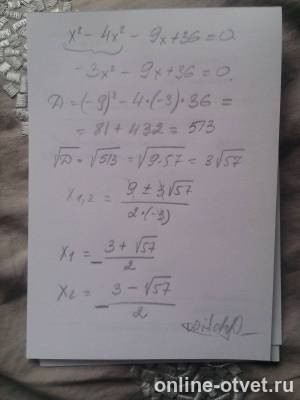 x² - 4x² - 9x + 36 = 0
-3x² - 9x + 36 = 0.
D = (-9)² - 4*(-3)*36 =
= 81 + 432 = 513
√D = √513 = √9·57 = 3√57
x₁,₂ = (9 ± 3√57)/(2*(-3))
x₁ = -(3 + √57)/2
x₂ = -(3 - √57)/2
online-otvet.ru